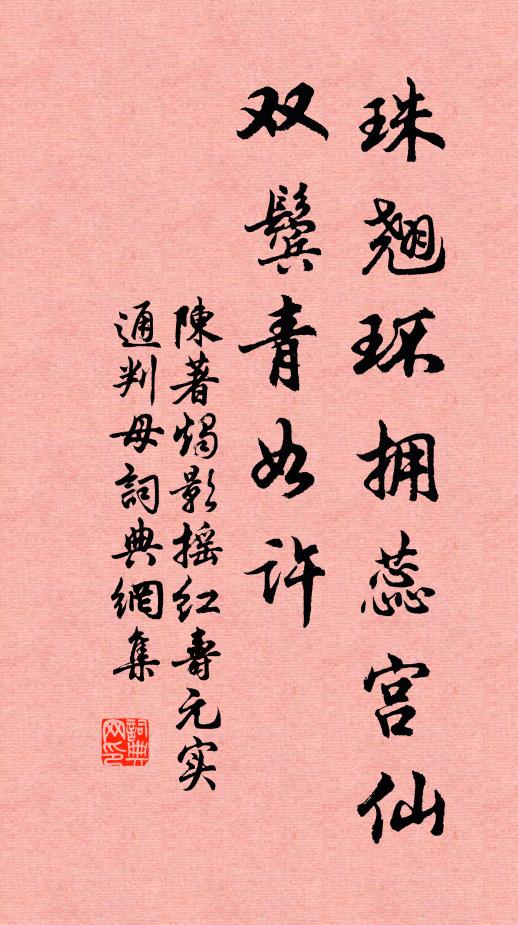 珠翘环拥蕊宫仙
双鬓青如许
陳著烛影摇红壽元实
通判母詞典網集
詞典網印